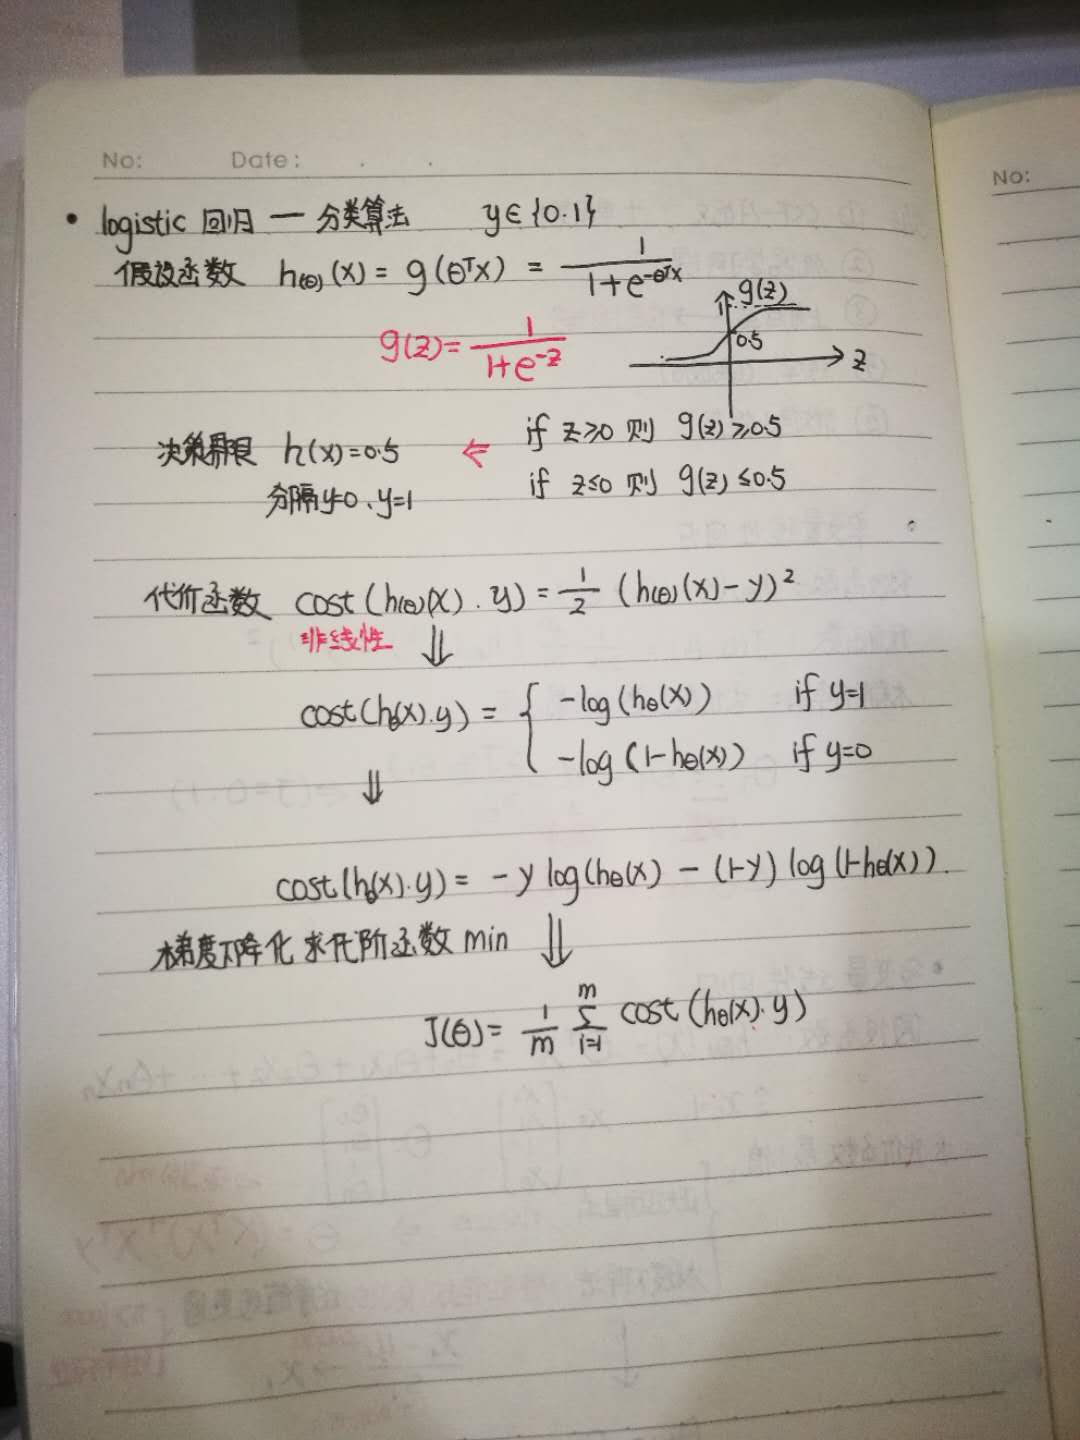 No: Date:
No:
• logistic 回归 — 分类算法 y∈{0.1}
假设函数 h(θ)(x) = g(θᵀx) = 1/(1+e^-θᵀx)
g(z)
0.5
z
g(z) = 1/(1+e^-z)
决策界限 h(x)=0.5 ← if z≥0 则 g(z)≥0.5
分隔y=0、y=1 if z≤0 则 g(z)≤0.5
代价函数 cost(h(θ)(x).y) = 1/2 (h(θ)(x)-y)²
非线性 ⇓
cost(hθ(x).y) = { -log(hθ(x)) if y=1
-log(1-hθ(x)) if y=0
⇓
cost(hθ(x).y) = -y log(hθ(x) - (1-y) log(1-hθ(x)).
梯度下降化 求代阶函数 min ⇓
J(θ) = 1/m Σ_{i=1}^{m} cost(hθ(x).y)